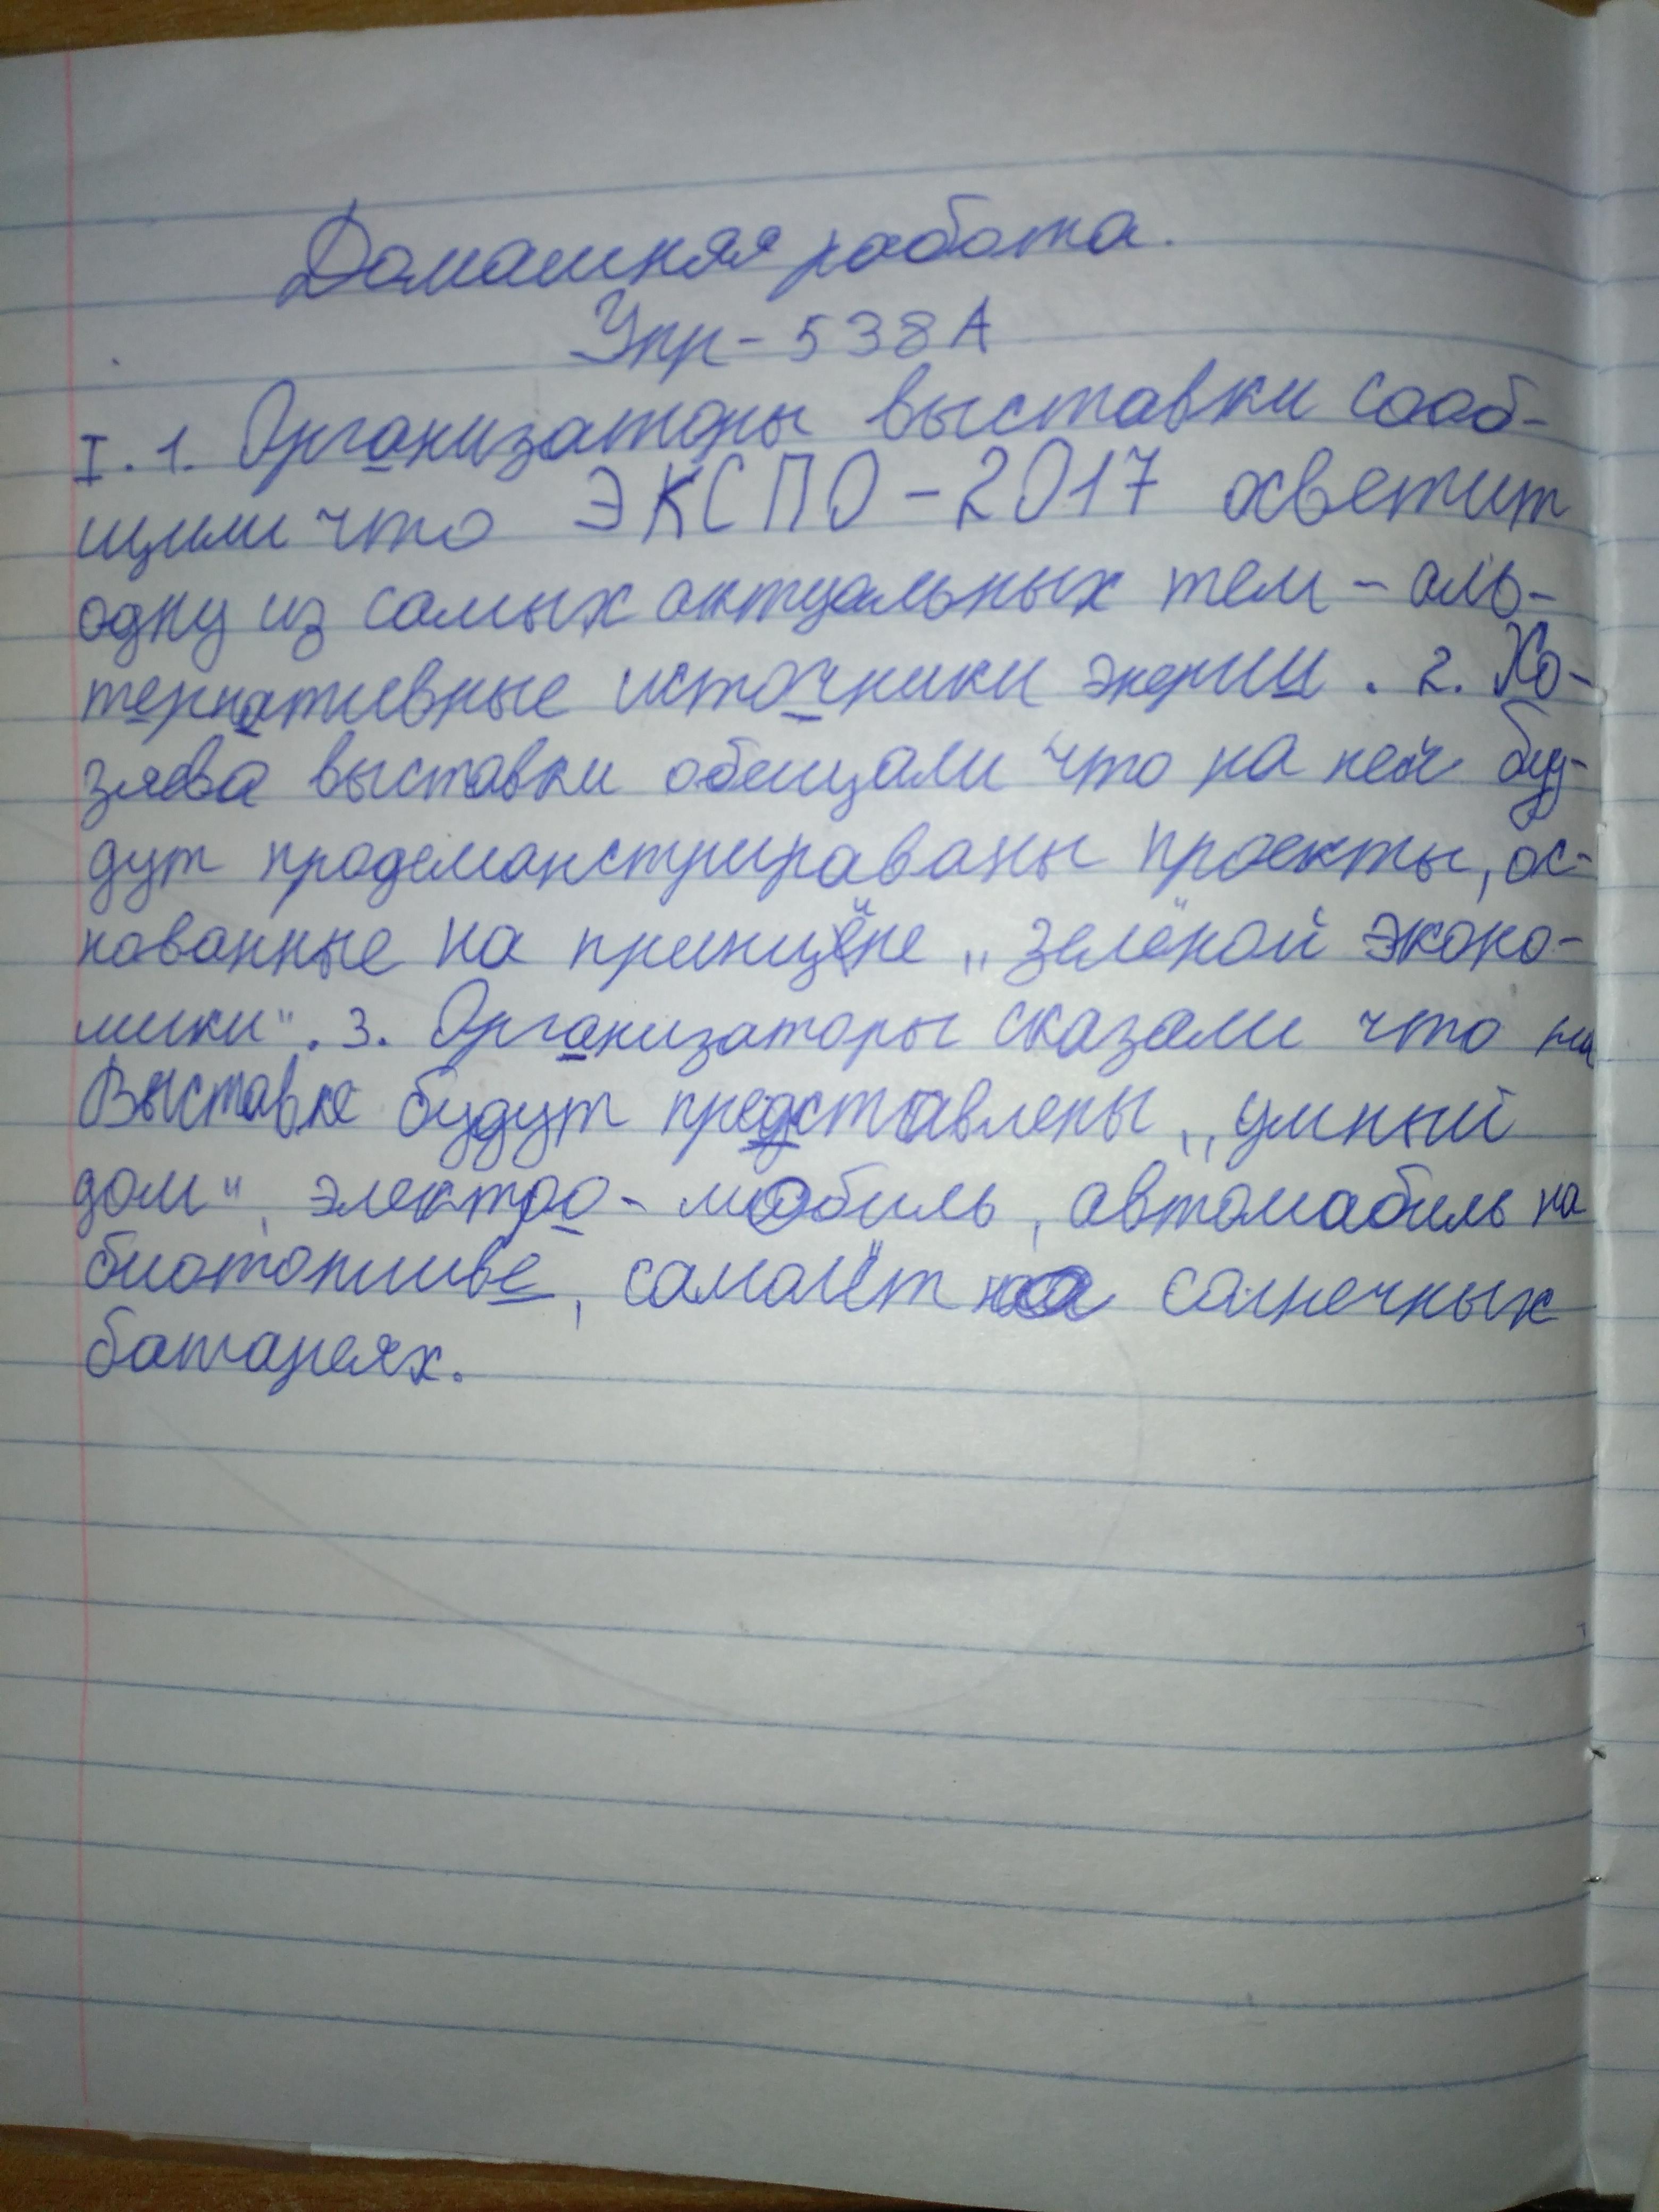 Домашняя работа.
Упр - 538А
I. 1. Организаторы выставки сооб-
щили что ЭКСПО - 2017 осветит
одну из самых актуальных тем - аль-
тернативные источники энерии. 2. Хо-
зяева выставки обещали что на ней бу-
дут продемонстрированы проекты, ос-
нованные на принципе „зелёной эконо-
мики". 3. Организаторы сказали что на
Выставке будут представлены „умный
дом", электро - мобиль, автомабиль на
биотопливе, самолёт на солнечных
батареях.